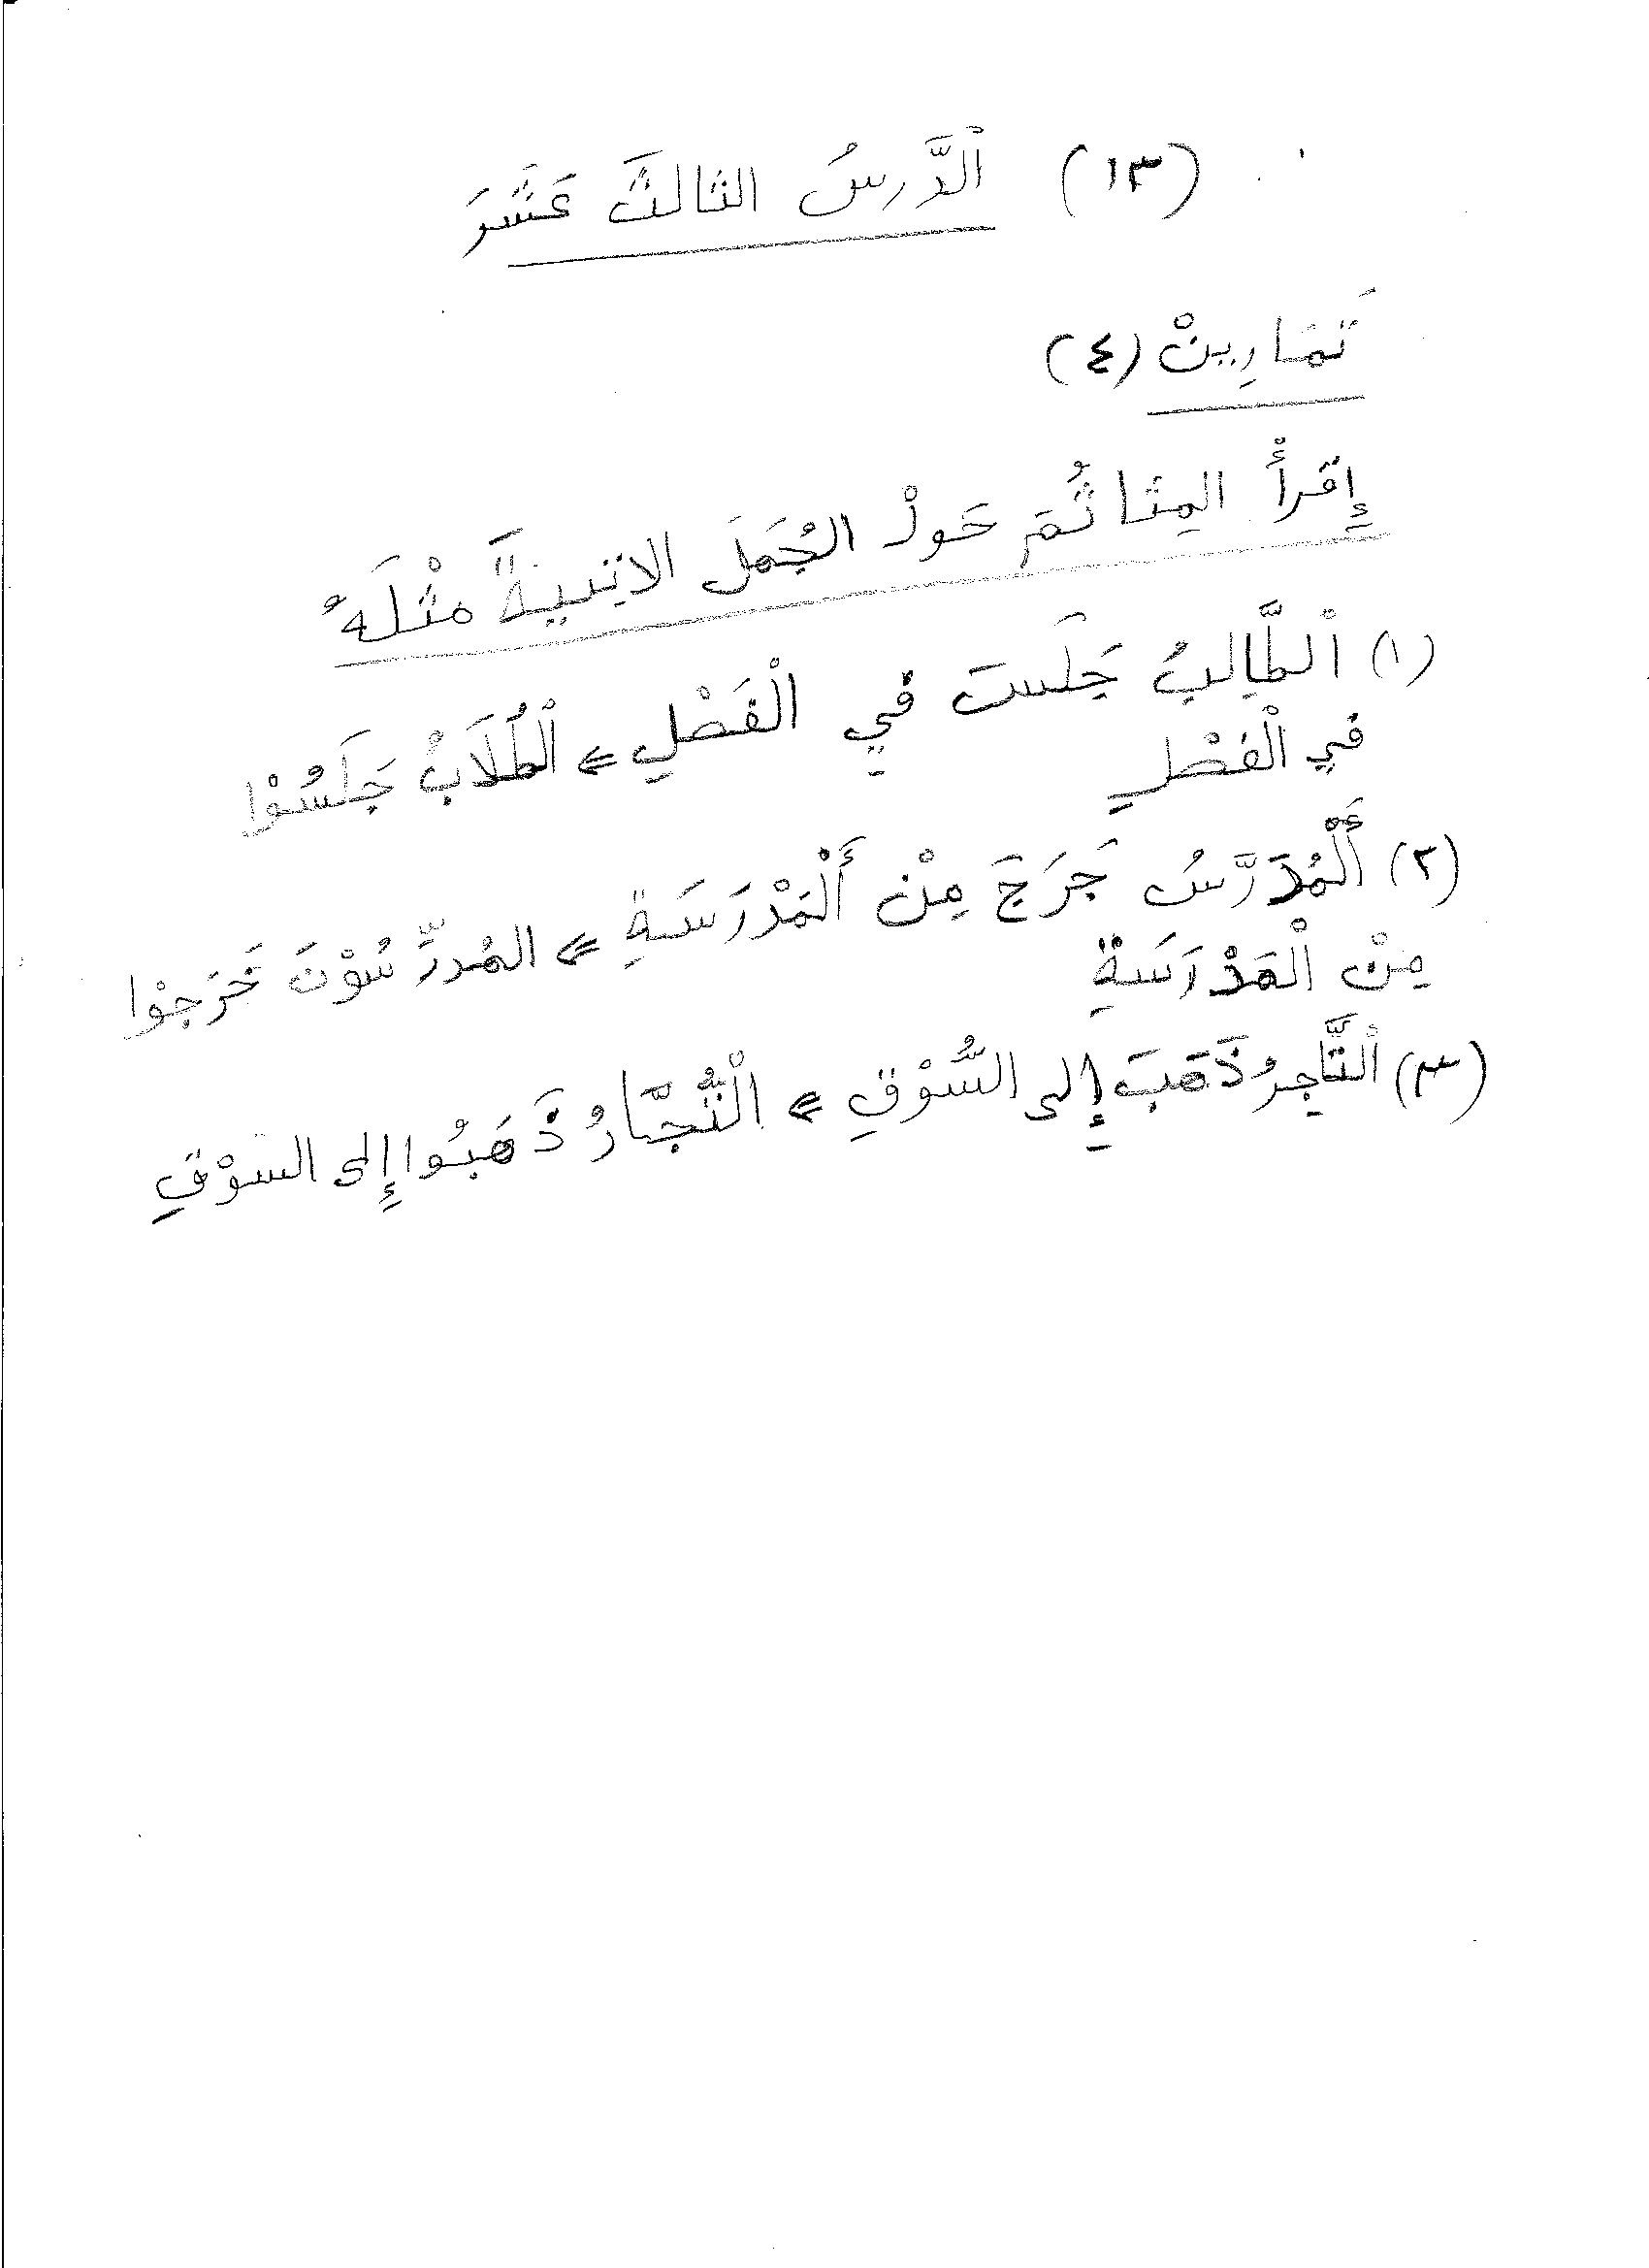 (١٣) اَلدَّرسُ الثالثَ عَشَرَ
تَمَارِينْ (٤)
إِقرأْ المِثا ثُمَ حَولْ الجُمَلَ الاتيبيةً مثْلَهُ
(١) اْلطَّالِبُ جَلَست فِي الْفَصْلِ ⇐ الْطُلَابُ جَلَسُوْا
في الْفَصْلِ
(٢) أَلْمُدَرَّسُ جَرَجَ مِنْ أَلْمَدْرَسَةِ ⇐ المُدرِّسُوْنَ خَرَجوْا
مِنْ الْمَدْرَسَةِ
(٣) اْلتَّاجِرُ ذَهَبَ إِلى السُّوْقِ ⇐ الْتُجَّارُ ذَهَبُوا إِلى السوْقِ